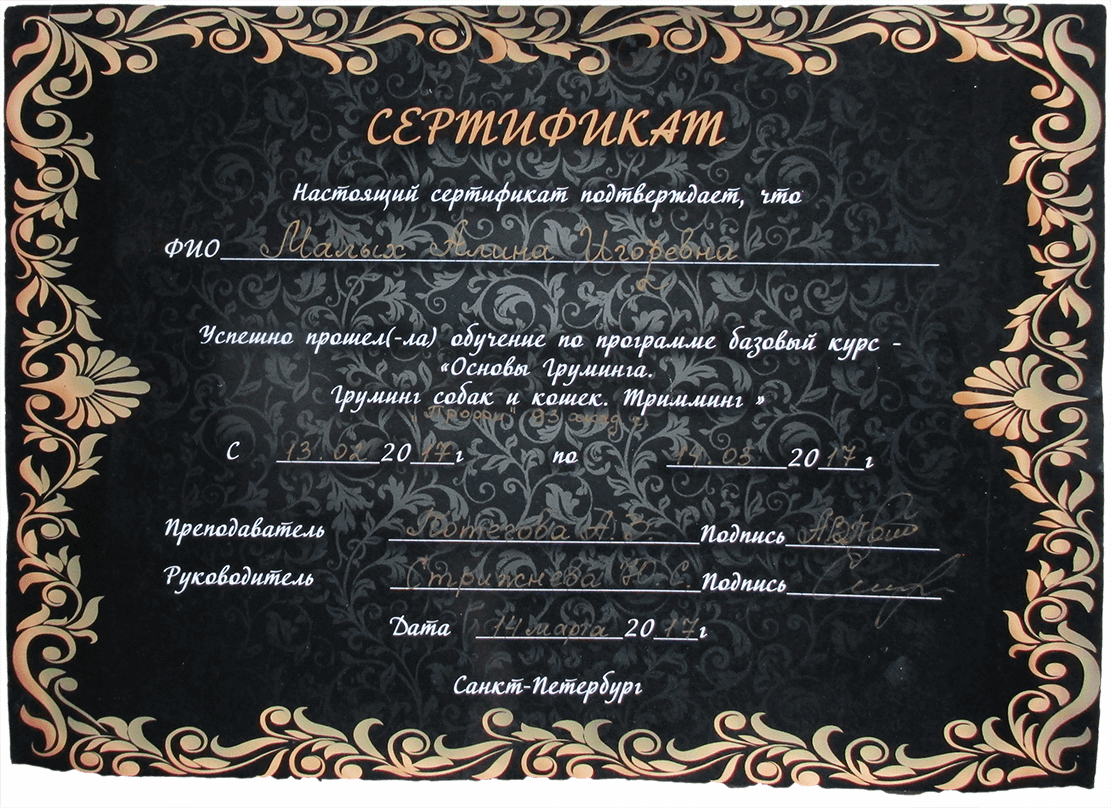 СЕРТИФИКАТ
Настоящий сертификат подтверждает, что
ФИО Малых Алина Игоревна
Успешно прошел(-ла) обучение по программе базовый курс -
«Основы Груминга.
Груминг собак и кошек. Тримминг »
"Профи" 93 акад ч.
С 13.02 2017г по 14.03 2017г
Преподаватель А. Подпись
Руководитель Стрижнева Н.С. Подпись
Дата 14 марта 2017г
Санкт-Петербург